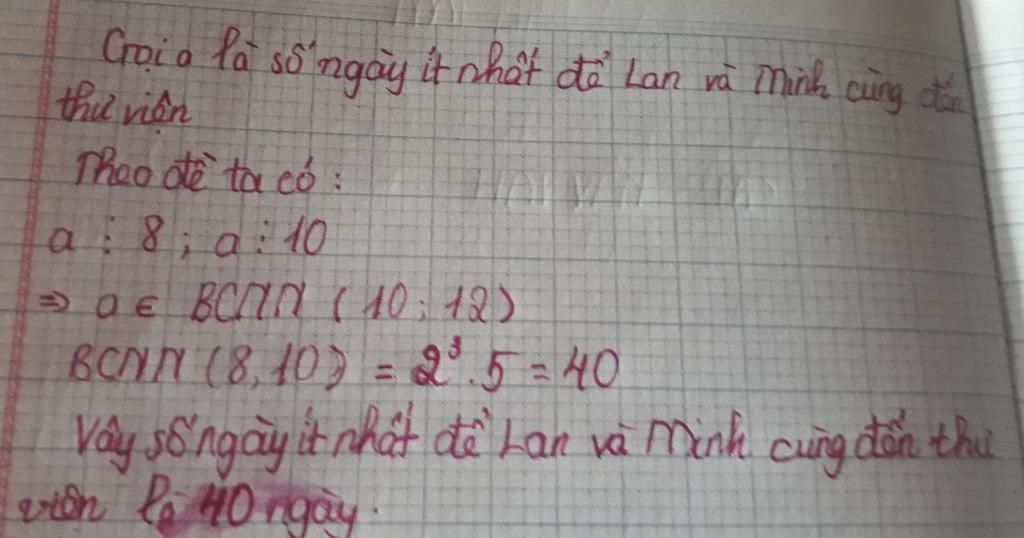 Gọi a là số ngày ít nhất để Lan và Minh cùng đến
thư viện
Theo đề ta có:
a ⋮ 8 ; a ⋮ 10
⇒ a ∈ BCNN (10; 12)
BCNN (8, 10) = 2³ . 5 = 40
Vậy số ngày ít nhất để Lan và Minh cùng đến thư
viện là 40 ngày.